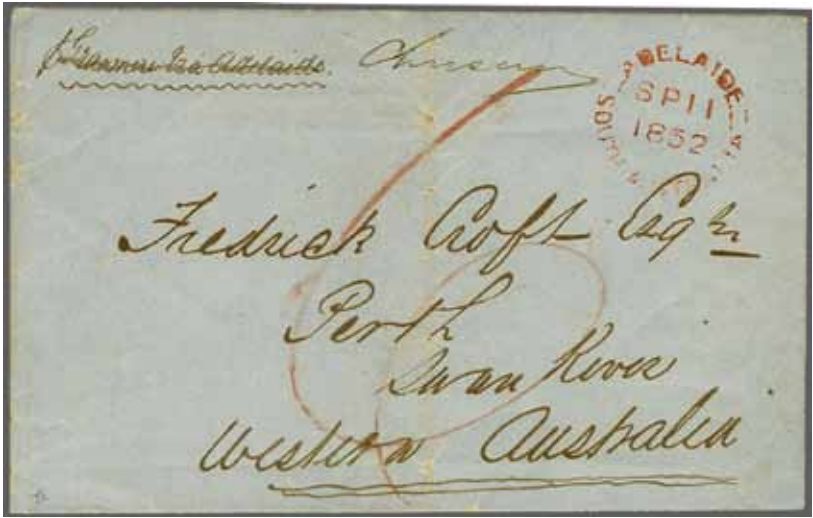 via Adelaide.
ADELAIDE
SP 11
1852
SOUTH
Fredrick Croft Esqre
Perth
Swan River
Western Australia
6